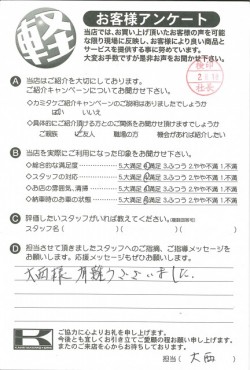 軽
お客様アンケート
当店では、お買い上げ頂いたお客様の声を可能
な限り現場に反映し、お客様により良い商品と
サービスを提供する事に努めています。
大変お手数ですが是非お声をお聞かせ下さい。
A 当店はご紹介を大切にしております。
ご紹介キャンペーンについてお聞かせ下さい。
◇カミタケご紹介キャンペーンのご説明はありましたでしょうか
はい いいえ
◇具体的にご紹介頂ける方とのご関係をお聞かせ頂けますでしょうか
ご親族 ご友人 職場の方 機会があれば紹介したい
B 当店を実際にご利用になった印象をお聞かせ下さい。
◇総合的な満足度 5.大満足 4.満足 3.ふつう 2.やや不満 1.不満
◇スタッフの対応 5.大満足 4.満足 3.ふつう 2.やや不満 1.不満
◇お店の雰囲気、清掃 5.大満足 4.満足 3.ふつう 2.やや不満 1.不満
◇納車時のお車の状態 5.大満足 4.満足 3.ふつう 2.やや不満 1.不満
C 評価したいスタッフがいれば教えてください。
スタッフ名( )( )( )
D 担当させて頂きましたスタッフへのご指摘、ご指導メッセージを
お願いします。応援メッセージもぜひお願いします。
大西様 有難うございました。
K
ご協力に心よりお礼を申し上げます。
今後とも宜しくお引き立てご愛顧の程お願い申し上げます。
またのご来店を心からお待ちしております。
担当( 大西 )